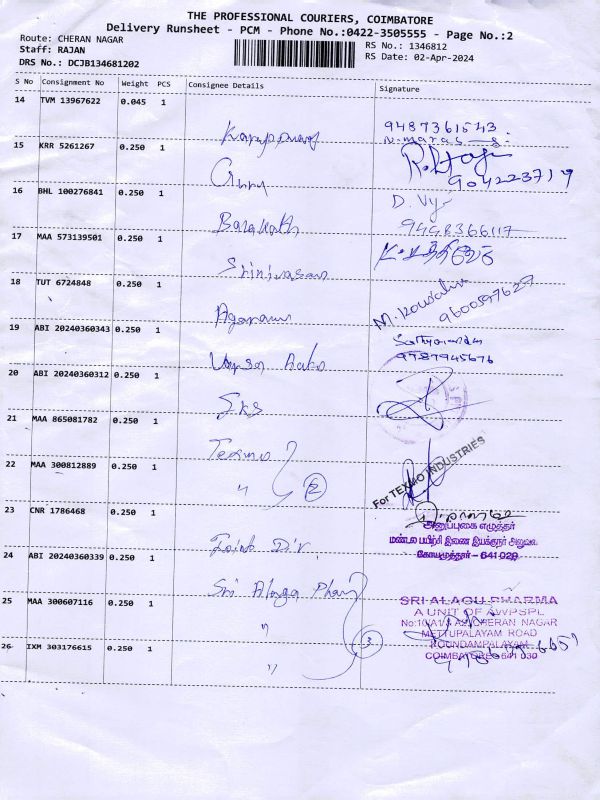 THE PROFESSIONAL COURIERS, COIMBATORE
Delivery Runsheet - PCM - Phone No.:0422-3505555 - Page No.:2
Route: CHERAN NAGAR
Staff: RAJAN
DRS No.: DCJB134681202
RS No.: 1346812
RS Date: 02-Apr-2024
S No Consignment No Weight PCS Consignee Details Signature
14 TVM 13967622 0.045 1
9487361543
15 KRR 5261267 0.250 1 Guru
9042237179
16 BHL 100276841 0.250 1 Barakath
D. Vij
9498366117
17 MAA 573139501 0.250 1 Srinivasan
18 TUT 6724848 0.250 1 Agaram
M. Kousalya
9600597629
19 ABI 20240360343 0.250 1
9787945676
20 ABI 20240360312 0.250 1 SKS
21 MAA 865081782 0.250 1 Texmo
For TEXMO INDUSTRIES
22 MAA 300812889 0.250 1 " 2
23 CNR 1786468 0.250 1 Joint Dir
அனுப்புகை எழுத்தர்
மண்டல பயிற்சி இணை இயக்குநர் அலுவலகம்
கோயமுத்தூர் - 641 029
24 ABI 20240360339 0.250 1 Sri Alaga Phar
25 MAA 300607116 0.250 1 " 3
SRI ALAGU PHARMA
A UNIT OF AWPSPL
No:10/A1/1 A2, CHERAN NAGAR
METTUPALAYAM ROAD
KOUNDAMPALAYAM
COIMBATORE 641 030
26 IXM 303176615 0.250 1 "